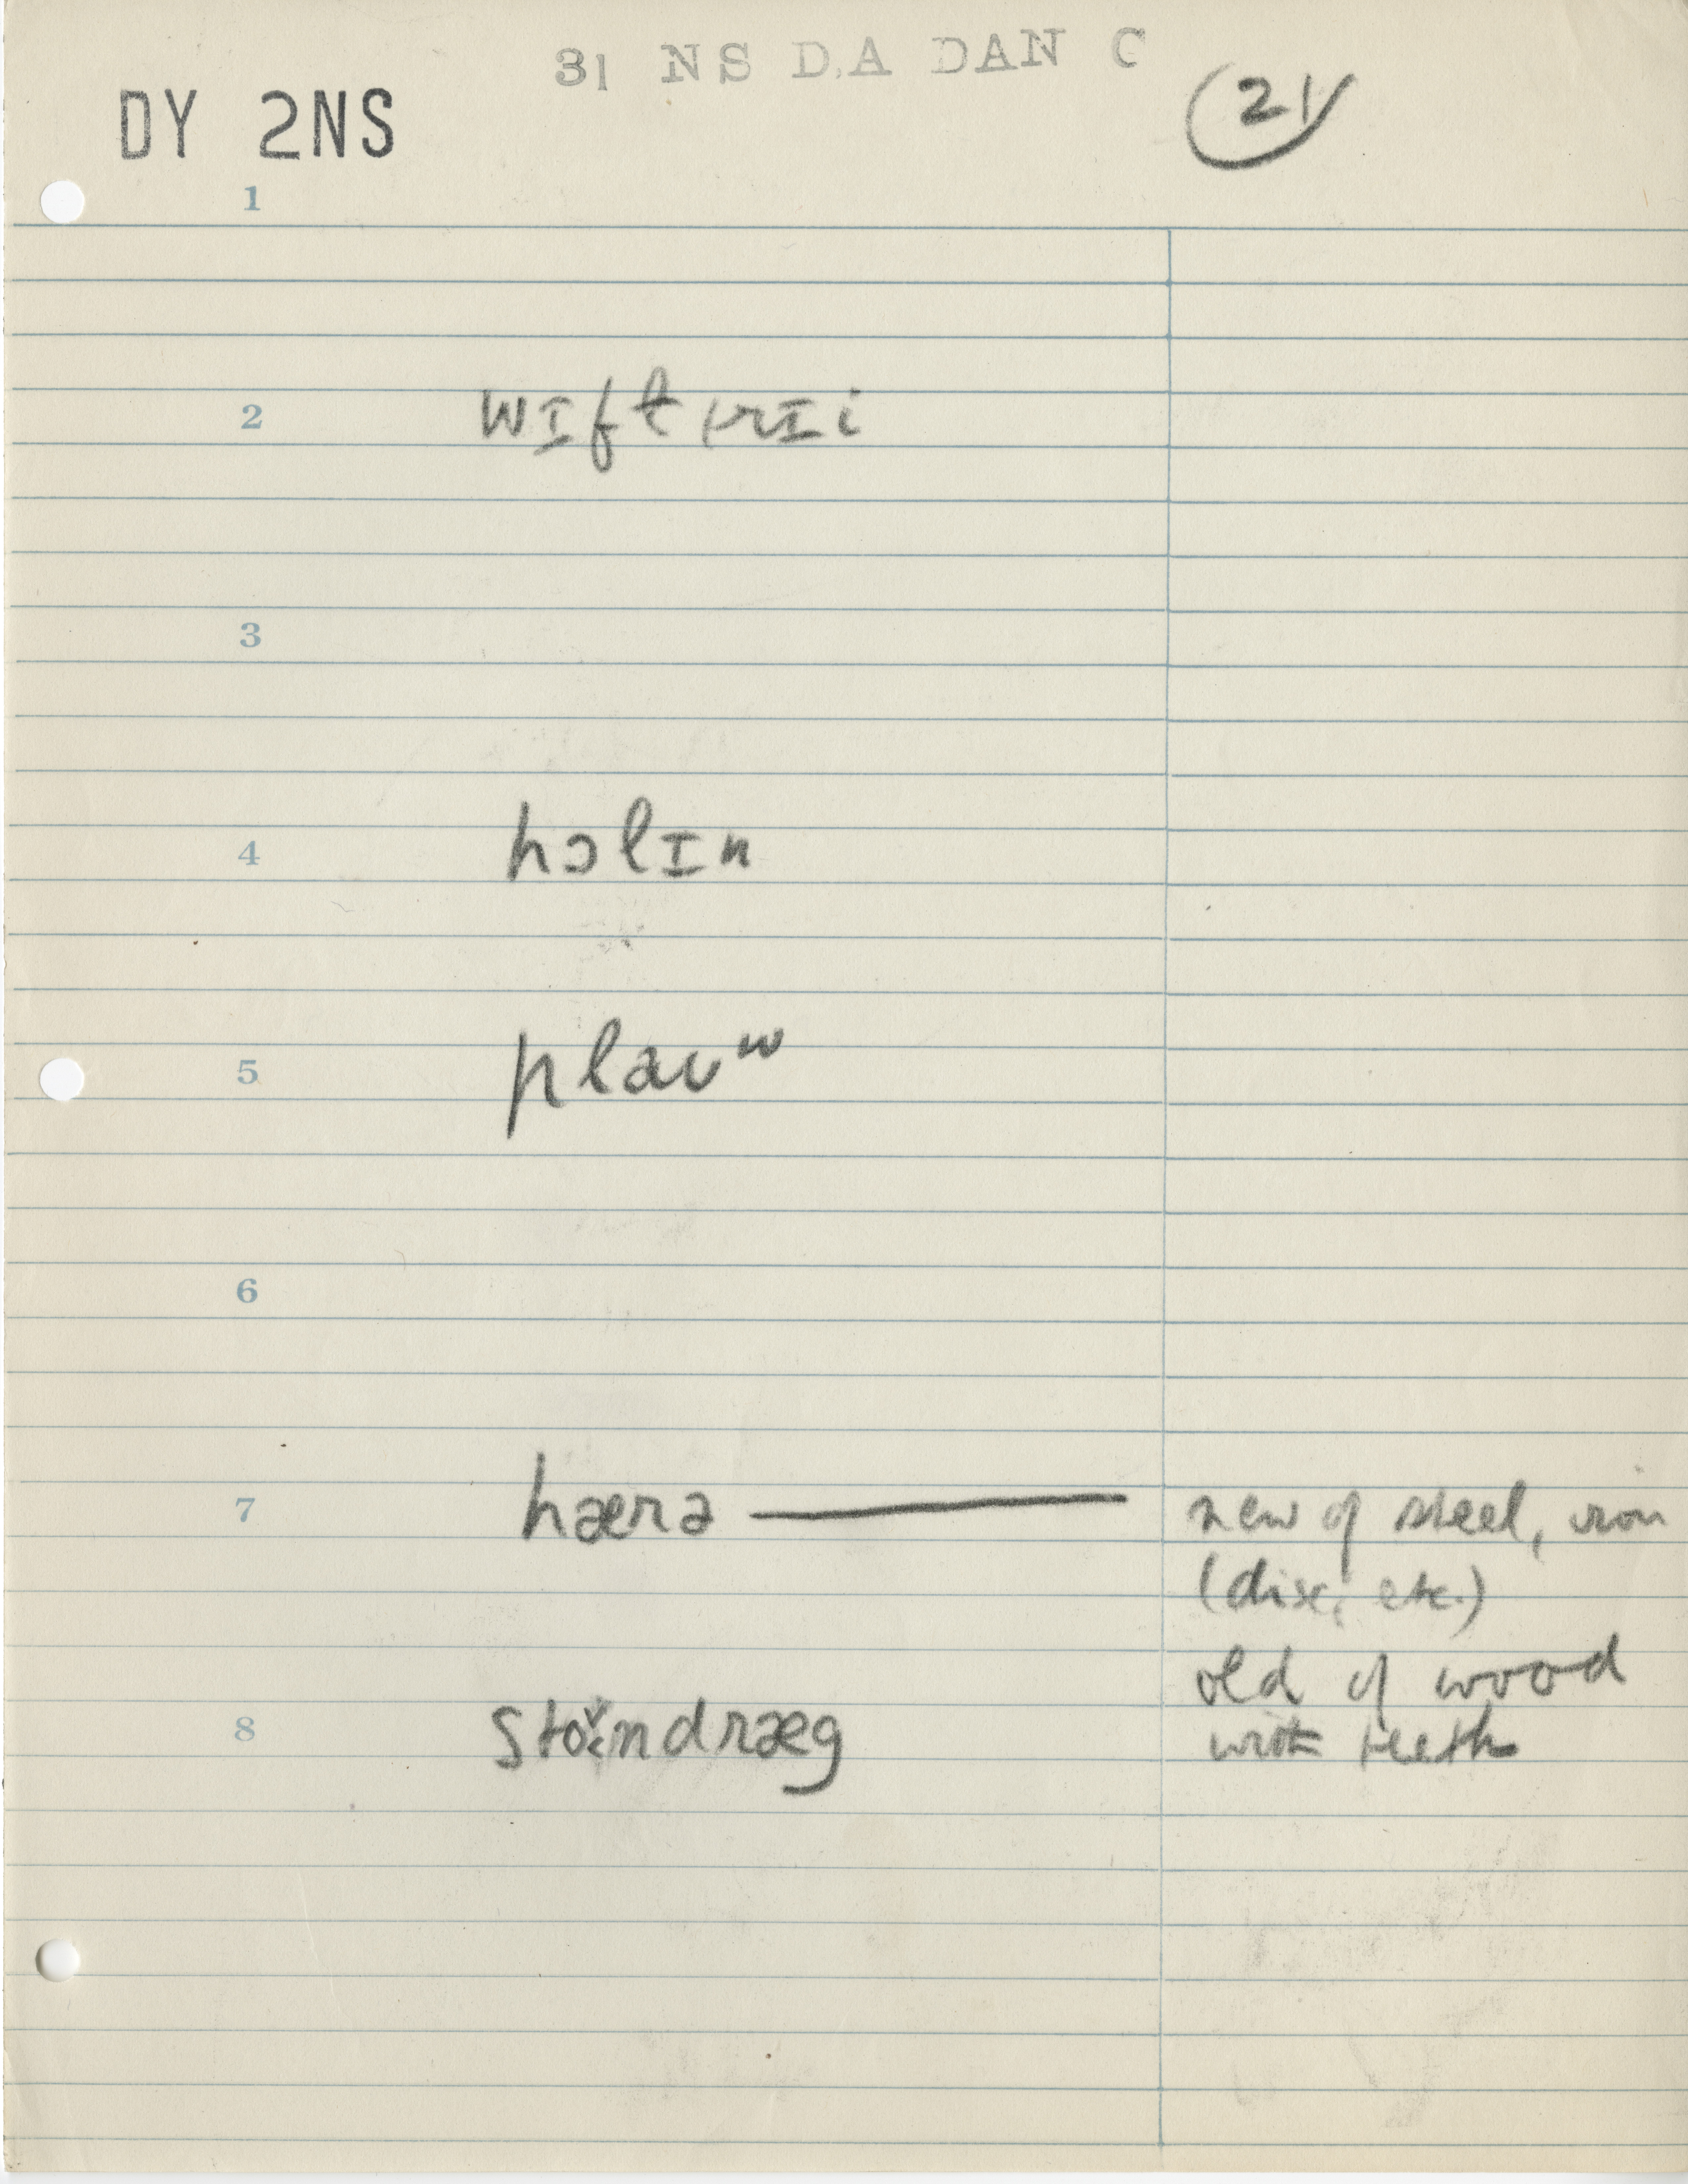 31 NS D.A DAN C
DY 2NS
21
1
2 wɪftrɪi
3
4 hɔlɪn
5 plaʊʷ
6
7 hærə — new of steel, iron
(disc, etc.)
old of wood
8 stoʊndræg with teeth